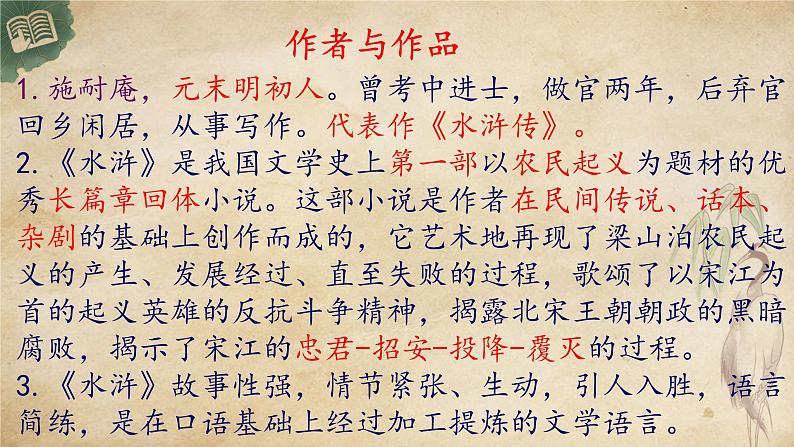 作者与作品
1.施耐庵，元末明初人。曾考中进士，做官两年，后弃官
回乡闲居，从事写作。代表作《水浒传》。
2.《水浒》是我国文学史上第一部以农民起义为题材的优
秀长篇章回体小说。这部小说是作者在民间传说、话本、
杂剧的基础上创作而成的，它艺术地再现了梁山泊农民起
义的产生、发展经过、直至失败的过程，歌颂了以宋江为
首的起义英雄的反抗斗争精神，揭露北宋王朝朝政的黑暗
腐败，揭示了宋江的忠君-招安-投降-覆灭的过程。
3.《水浒》故事性强，情节紧张、生动，引人入胜，语言
简练，是在口语基础上经过加工提炼的文学语言。